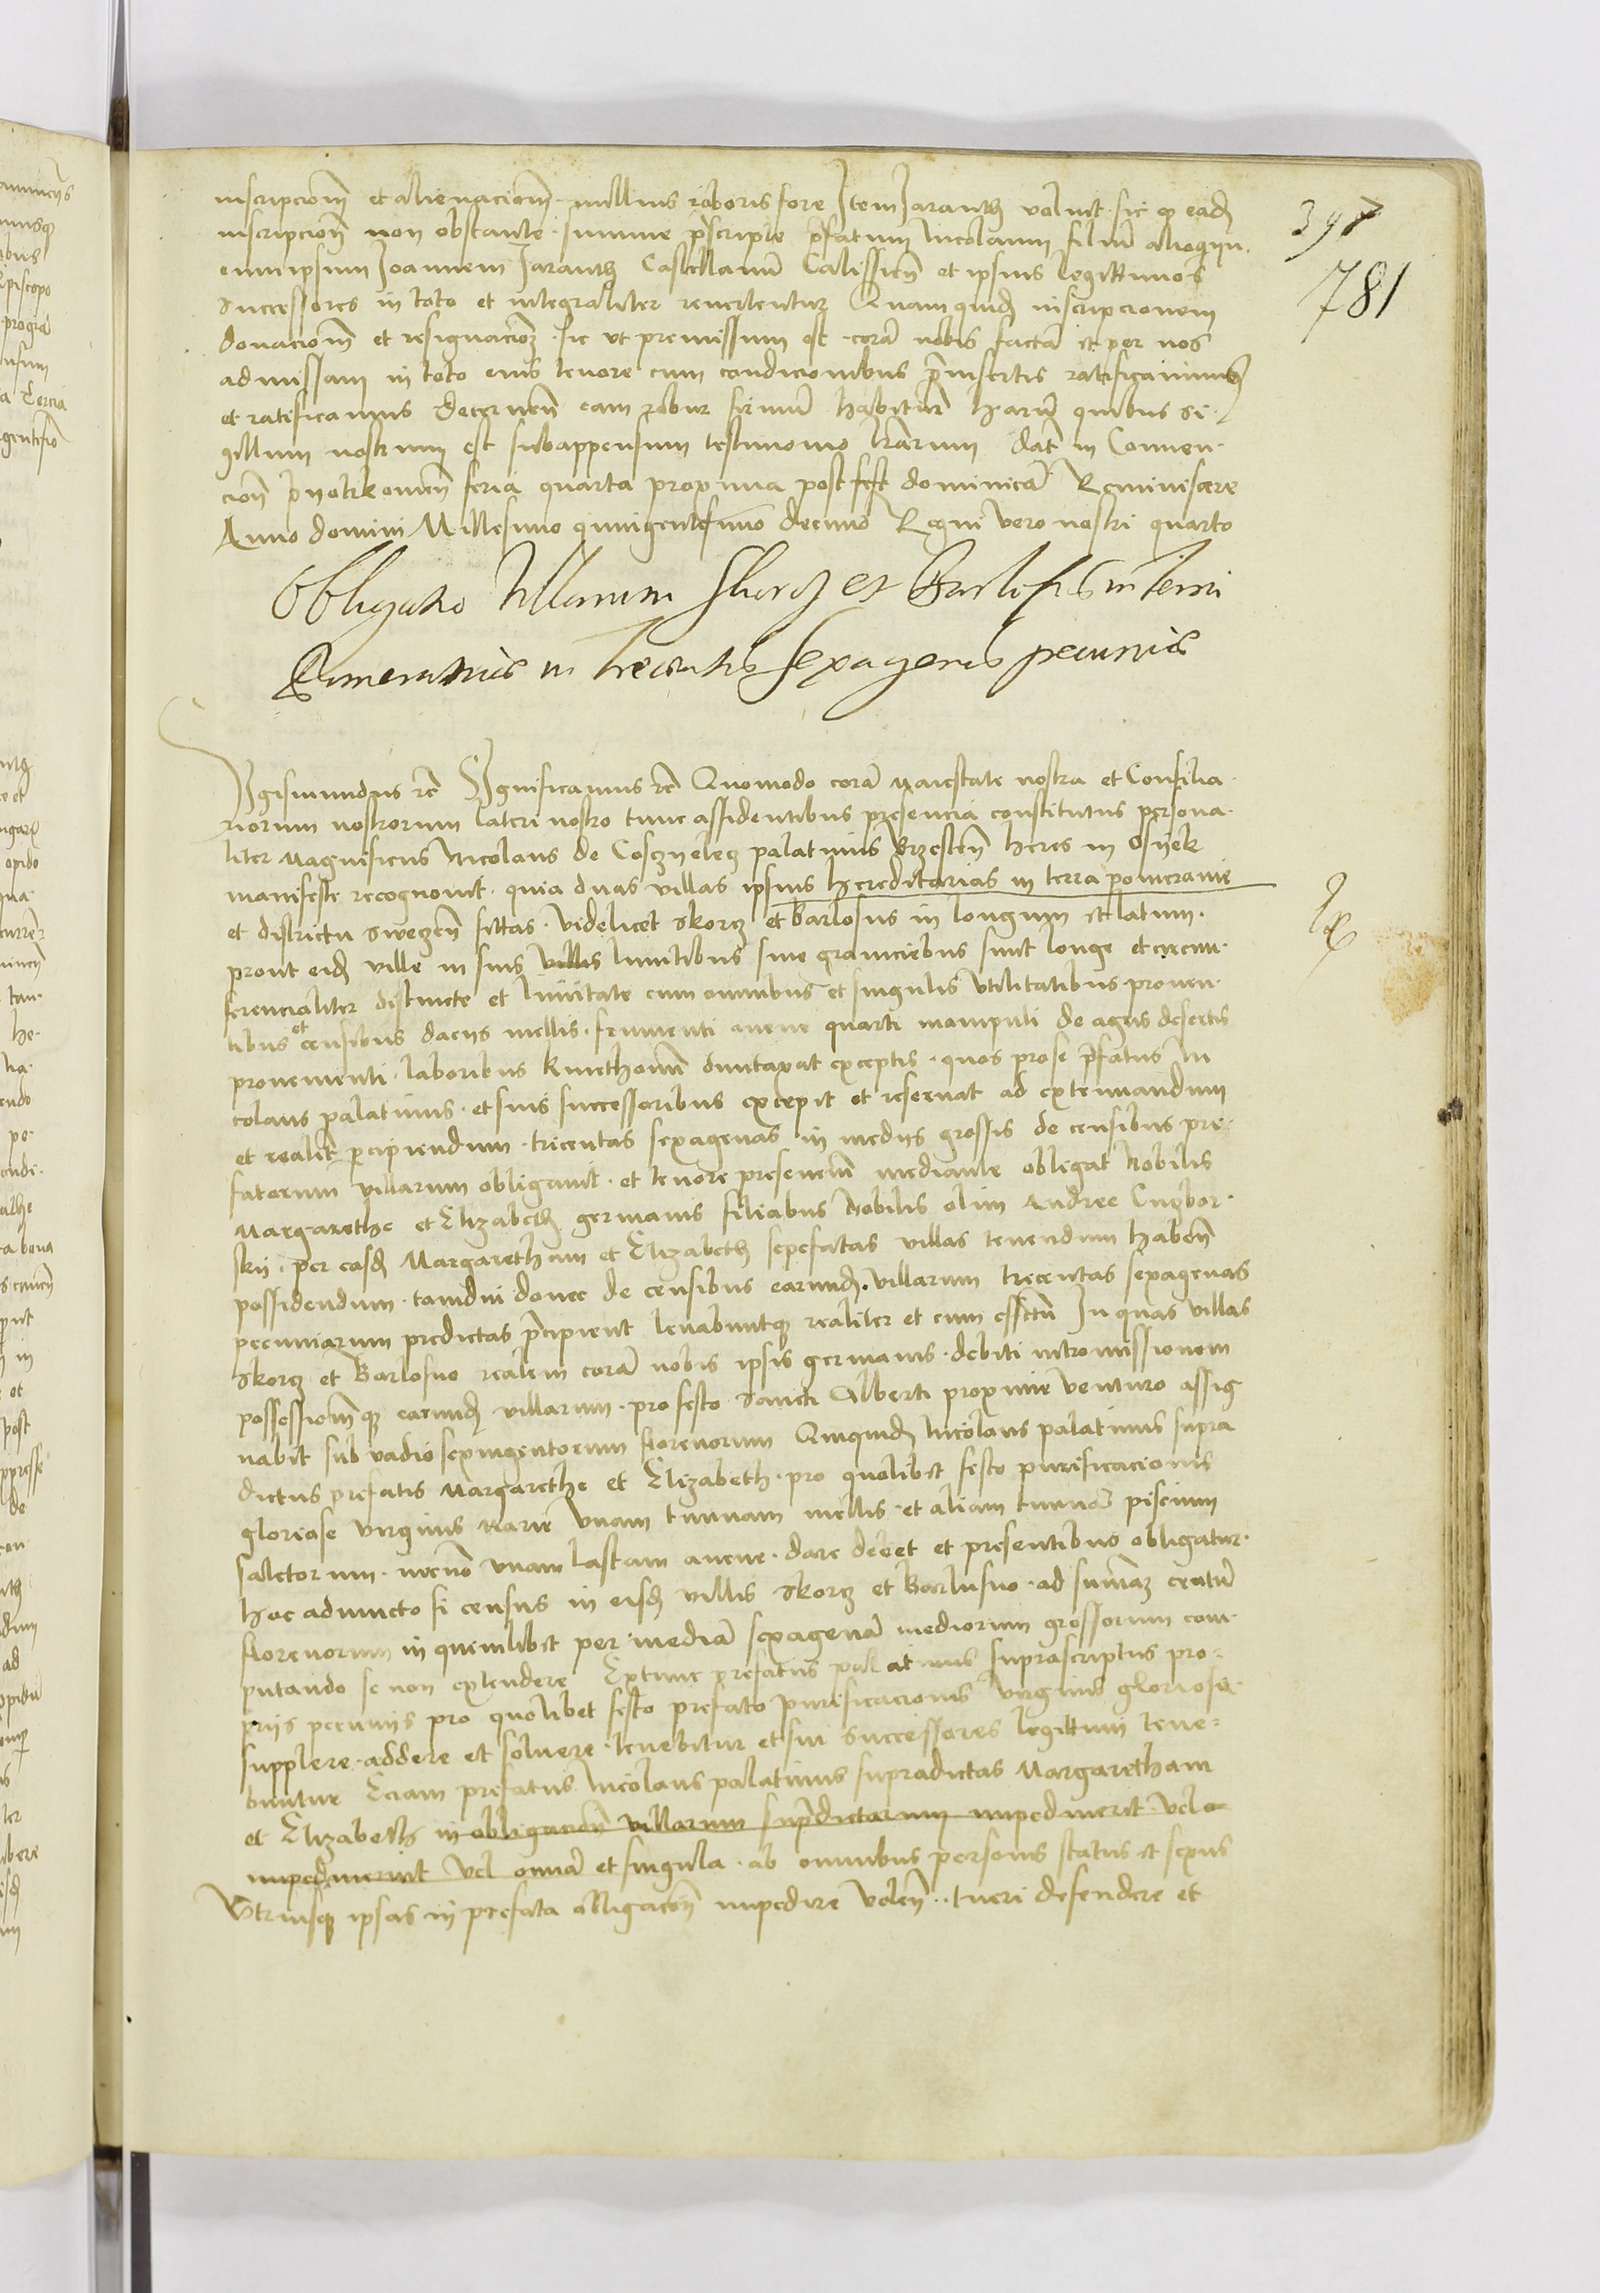 inscripcionem et alienacionem nullius roboris fore Item Jaranth voluit sic q eadem
inscripcione non obstante summe prescripte prefatum Nicolaum filium alioquin
eum ipsum Joannem Jaranth Castellanum Calissien et ipsius legittimos
Successores in toto et integraliter revertentur Quamquidem inscripcionem
donacionem et resignacionem sic ut premissum est coram nobis factam et per nos
admissam in toto eius tenore cum condicionibus preinsertis ratificavimus
et ratificamus decernen eam robur firmum habitur harum quibus si-
gillum nostrum est subappensum testimonio literarum dat in Conven-
cione Pyotrkovien feria quarta proxima post fest dominicam Reminiscere
Anno domini Millesimo quingentesimo decimo Regni vero nostri quarto
Obligatio Villarum Skorcz et Barlosno in terra
Pomeranie in trecentis sexagenis pecunie
397
781
Sigismundus etc Significamus etc Quomodo coram Maiestate nostra et Consilia-
riorum nostrorum lateri nostro tunc assidentibus presencia constitutus persona-
liter Magnificus Nicolaus de Cosczyelecz palatinus Brzesten heres in Osyek
manifeste recognovit quia duas villas ipsius hereditarias in terra pomeranie
et districtu Sweczen sittas videlicet Skorcz et Barlosno in longum et latum
prout eidem ville in suis villis limitibus sive graniciebus sunt longe et circum-
ferencialiter distincte et limitate cum omnibus et singulis utilitatibus proven-
tibus et censibus daciis mellis frumenti avene quarti manipuli de agris desertis
provenienti laboribus kmethonum duntaxat exceptis quos pro se prefatus Ni
colaus palatinus et suis successoribus excepit et reservat ad extenuandum
et realit percipiendum tricentas sexagenas in mediis grossis de censibus pre-
fatorum villarum obligavit et tenore presencium mediante obligat Nobilis
Margarethe et Elizabeth germanis filiabus Nobilis olim Andree Lugbor-
skij per easdem Margaretham et Elizabeth sepefatas villas tenendum haben
possidendum tamdiu donec de censibus earundem villarum trecentas sexagenas
pecuniarum predictas percipient levabuntque realiter et cum effectu In quas villas
Skorcz et Barlosno realem coram nobis ipsis germanis debiti intromissionem
possessionemque earundem villarum pro festo Sancti Alberti proxime venturo assig
nabit sub vadio sexingentorum florenorum Quiquidem Nicolaus palatinus supra
dictus prefatis Margarethe et Elizabeth pro quolibet festo purificacionis
gloriose virginis Marie Unam tunnam mellis et aliam tunnam piscium
salctorum necnon unam lastam avene dare debet et presentibus obligatur
hoc adiuncto si census in eisdem villis Skorcz et Barlusno ad summam centum
florenorum in quemlibet per mediam sexagenam mediorum grossorum com-
putando se non extendere Extunc prefatus palatinus suprascriptus pro-
priis pecuniis pro quolibet festo prefato purificacionis virginis gloriose
supplere addere et solvere tenebitur et sui Successores legittimi tene-
buntur Eciam prefatus Nicolaus palatinus supradictas Margaretham
et Elizabeth in obligacione villarum supradictarum impedinerit vel
impedinerint vel omnia et singula ab omnibus personis status et sexus
Utriusque ipsas in prefata obligacione impedire volen tueri defendere et